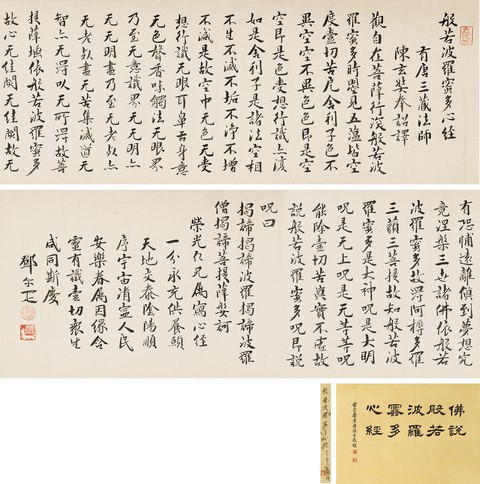 般若波羅蜜多心經
有唐三藏法師
陳玄奘奉詔譯
觀自在菩薩行深般若波
羅蜜多時照見五蘊皆空
度壹切苦厄舍利子色不
異空空不異色色即是空
空即是色受想行識亦復
如是舍利子是諸法空相
不生不滅不垢不淨不增
不減是故空中无色无受
想行識无眼耳鼻舌身意
无色聲香味觸法无眼界
乃至无意識界无无明亦
无无明盡乃至无老死亦
无老死盡无苦集滅道无
智亦无得以无所得故菩
提薩埵依般若波羅蜜多
故心无罣閡无罣閡故无
有恐怖遠離顛倒夢想究
竟涅槃三世諸佛依般若
波羅蜜多故得阿耨多羅
三藐三菩提故知般若波
羅蜜多是大神呪是大明
呪是无上呪是无等等呪
能除壹切苦真實不虛故
說般若波羅蜜多呪即說
呪曰
揭諦揭諦波羅揭諦波羅
僧揭諦菩提薩婆訶
榮光仁兄屬寫心經
一分永充供養願
天地交泰陰陽順
序宇宙清寧人民
安樂眷屬因緣含
靈有識壹切眾生
咸同斯慶
鄧尔疋
佛說
般若
波羅
蜜多
心經